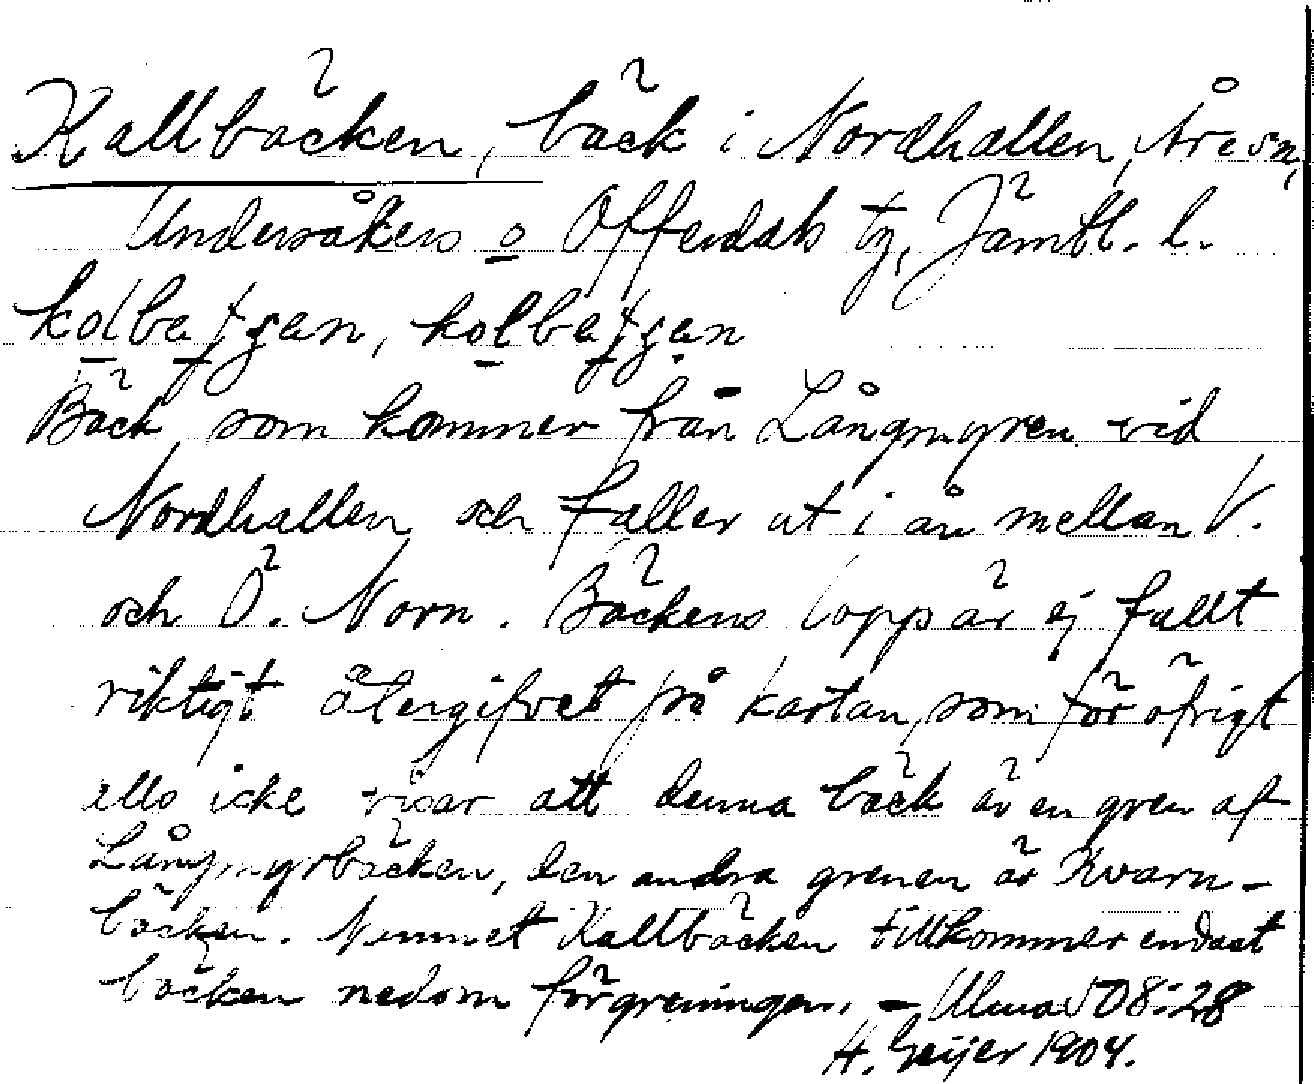 Kallbäcken, bäck i Nordhallen, Åre sn,
Undersåkers o Offerdals tg, Jämtl. l.
Bäck, som kommer från Långmyren vid
Nordhallen och faller ut i ån mellan V.
och Ö. Norn. Bäckens lopp är ej fullt
riktigt återgifvet på kartan, som för öfrigt
alls icke visar att denna bäck är en gren af
Långmyrbäcken, den andra grenen är Kvarn-
bäcken. Namnet Kallbäcken tillkommer endast
bäcken nedom förgreningen. – 08:28
H. Geijer 1904.